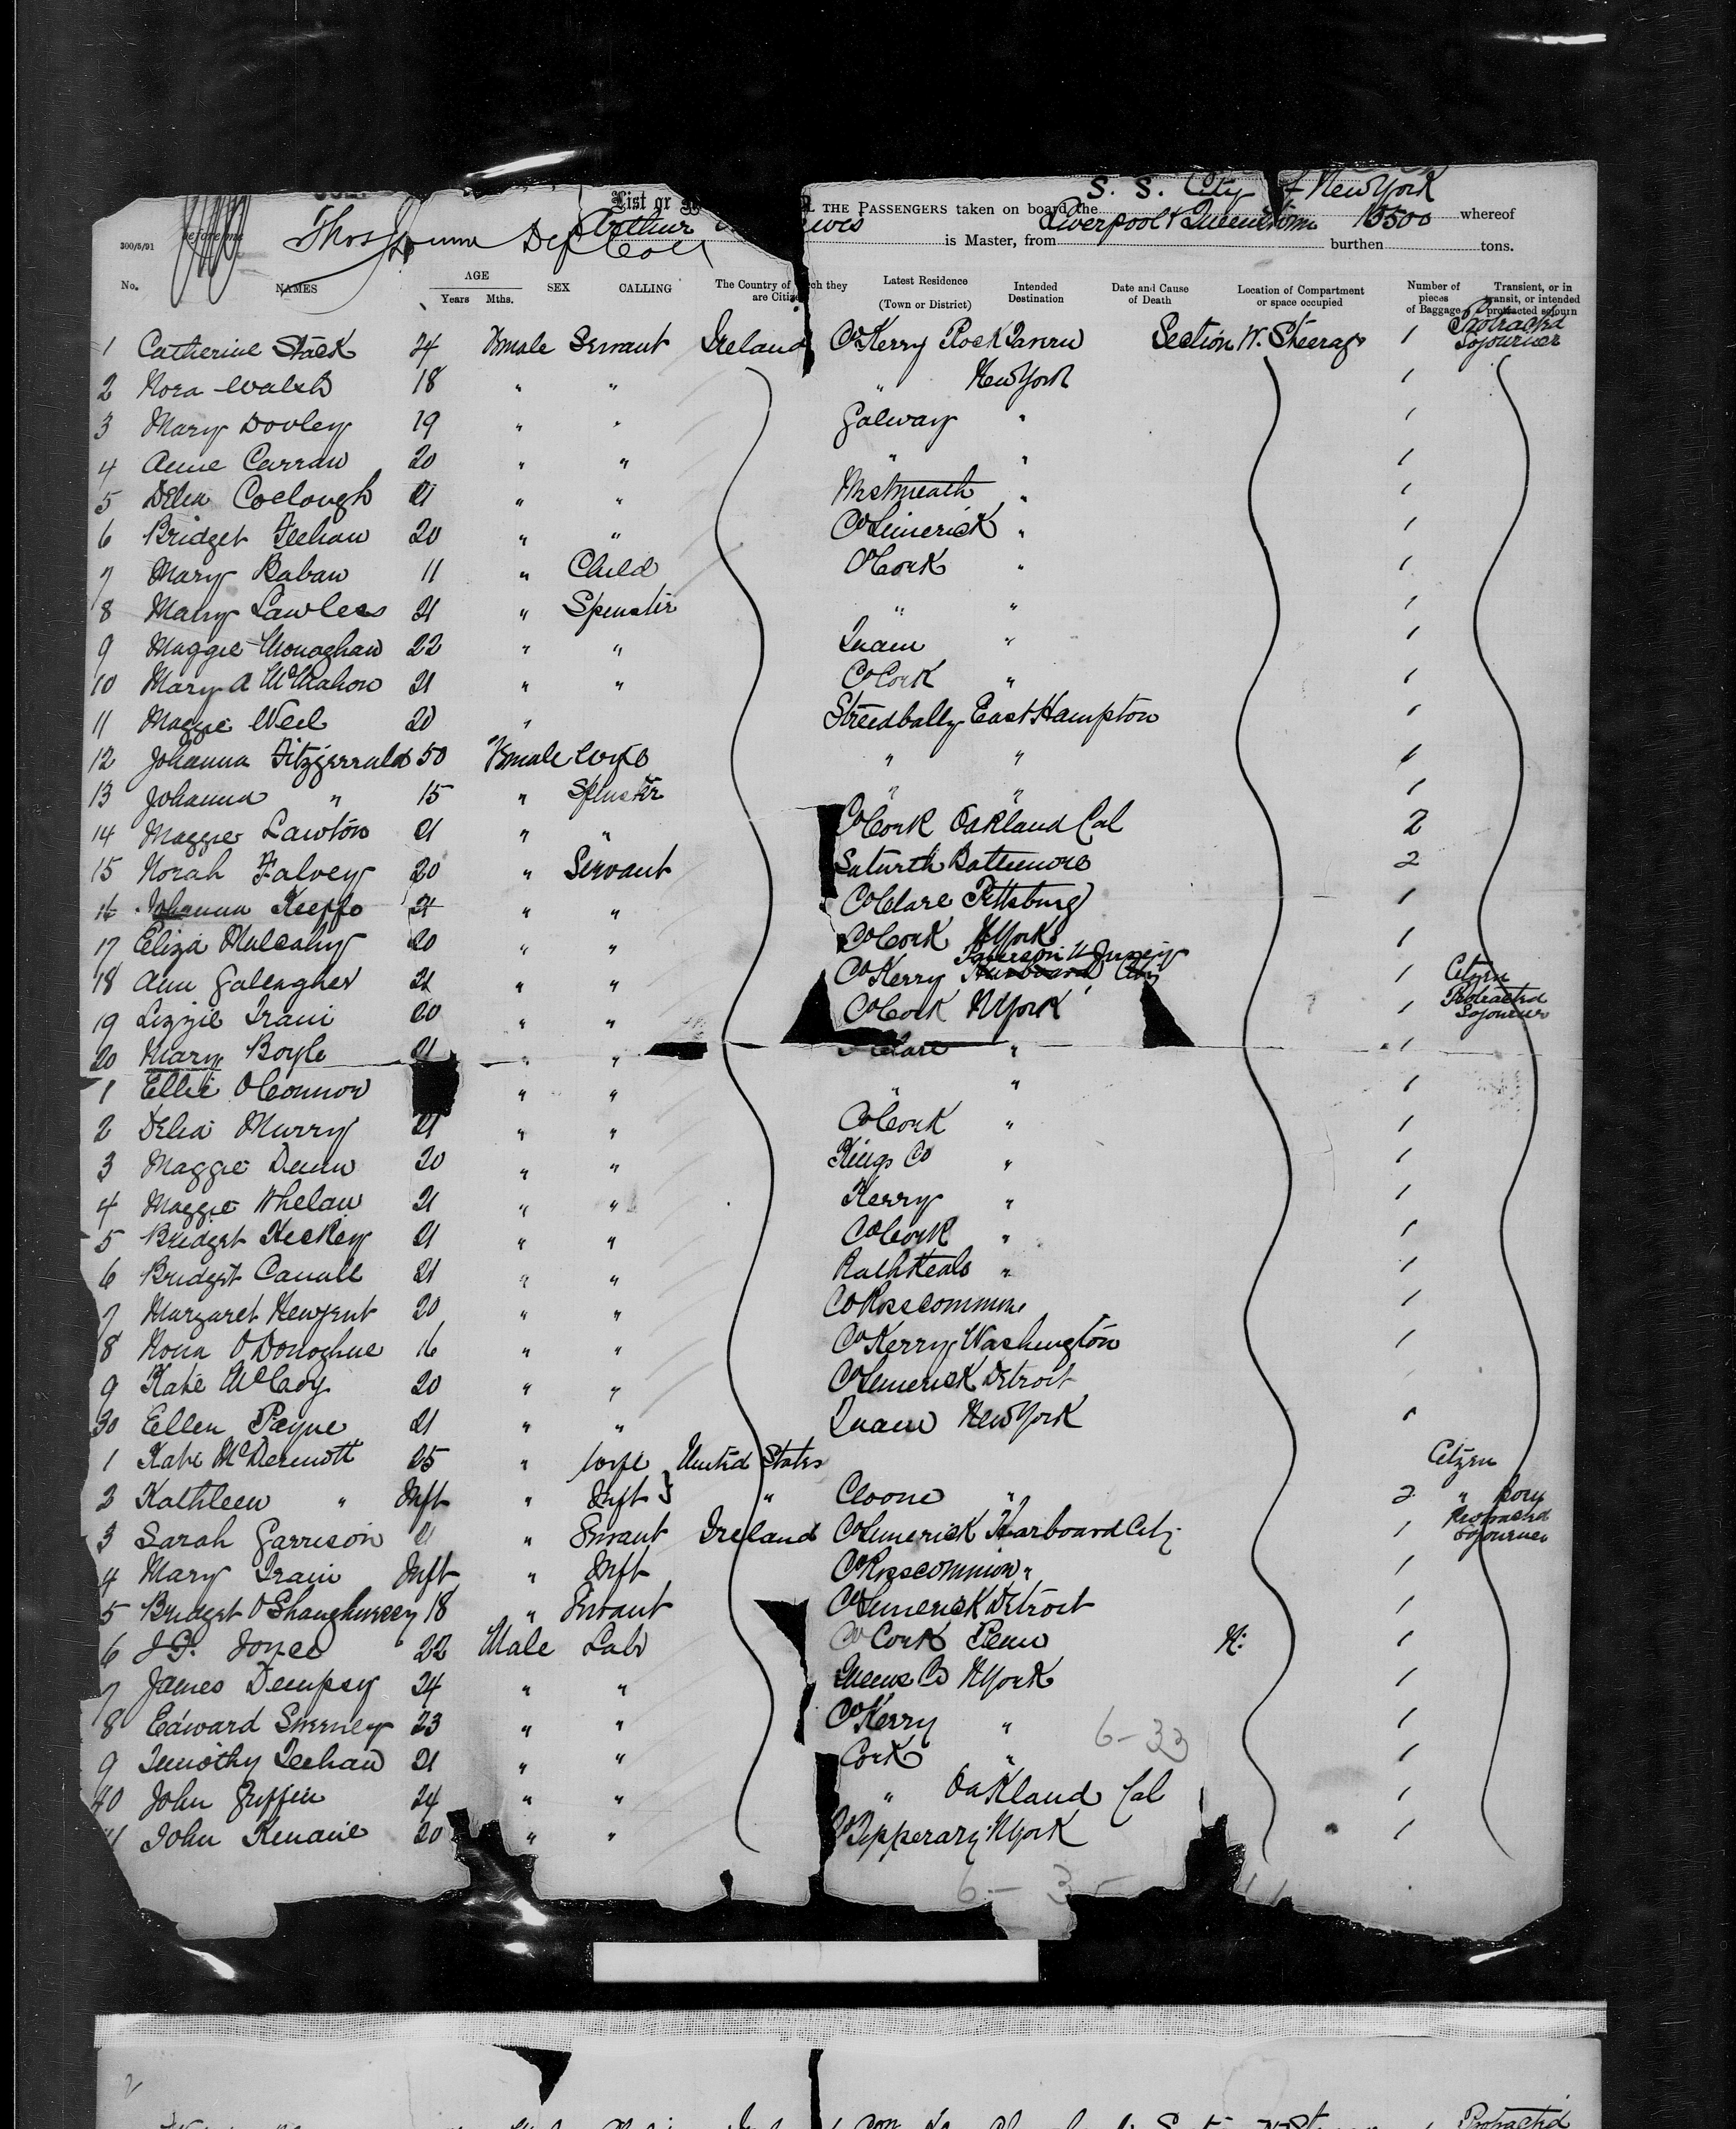 List or
S. S. City of New York
THE PASSENGERS taken on board the
Arthur
Liverpool & Queenstown 10500 whereof
is Master, from burthen tons.
300/5/91 before me Thos Dep Coll
No. NAMES AGE Years Mths. SEX CALLING The Country of which they are Citizens Latest Residence (Town or District) Intended Destination Date and Cause of Death Location of Compartment or space occupied Number of pieces of Baggage Transient, or in transit, or intended protracted sojourn
1 Catherine Stack 24 Female Servant Ireland Co Kerry Rock Tavern Section W. Steerage 1 Protracted Sojourner
2 Nora Walsh 18 " " " New York 1
3 Mary Dooley 19 " " Galway " 1
4 Anne Curran 20 " " " " 1
5 Delia Coclough 21 " " Westmeath " 1
6 Bridget Feehan 20 " " Co Limerick " 1
7 Mary Baban 11 " Child Co Cork " 1
8 Mary Lawless 21 " Spinster " " 1
9 Maggie Monaghan 22 " " Tuam " 1
10 Mary A McMahon 21 " " Co Cork " 1
11 Maggie Neil 20 " Streedbally East Hampton 1
12 Johanna Fitzgerrald 50 Female Wife " " 1
13 Johanna " 15 " Spinster " " 1
14 Maggie Lawton 21 " " Co Cork Oakland Cal 2
15 Norah Falvey 20 " Servant Baltimore 2
16 Johanna Keeffe 21 " " Co Clare Pittsburg 1
17 Eliza Mulcahy 20 " " Co Cork N York 1
18 Ann Galeagher 21 " " Co Kerry Paterson N Jersey Harboard City 1 Citizen
19 Lizzie Train 20 " " Co Cork N York 1 Protracted Sojourner
20 Mary Boyle 21 " " Clare " 1
1 Ellie O'Connor " " " " 1
2 Delia Murry 21 " " Co Cork " 1
3 Maggie Dunn 20 " " Kings Co " 1
4 Maggie Whelan 21 " " Kerry " 1
5 Bridget Hickey 21 " " Co Cork " 1
6 Bridget Canull 21 " " Rathkeale " 1
7 Margaret Newgent 20 " " Co Rosscommon 1
8 Nora O'Donoghue 16 " " Co Kerry Washington 1
9 Kate McCoy 20 " " Co Limerick Detroit
30 Ellen Payne 21 " " Tuam New York 1
1 Kate McDermott 25 " Wife United States Citizen
2 Kathleen " Inft " Inft } " Cloone " 2 " born
3 Sarah Garrison 21 " Servant Ireland Co Limerick Harboard City 1 Protracted Sojourner
4 Mary Train Inft " Inft Co Rosscommon " 1
5 Bridget O'Shaughnessy 18 " Servant Co Limerick Detroit 1
6 J. Jones 22 Male Labr Co Cork Penn N: 1
7 James Dempsey 24 " " Queens Co N York 1
8 Edward Sweeney 23 " " Co Kerry " 1
6-33
9 Timothy Teehan 21 " " Cork " 1
40 John Griffin 24 " " " Oakland Cal 1
1 John Kenane 20 " " Co Tipperary N York 1
6-3
2
Protracted